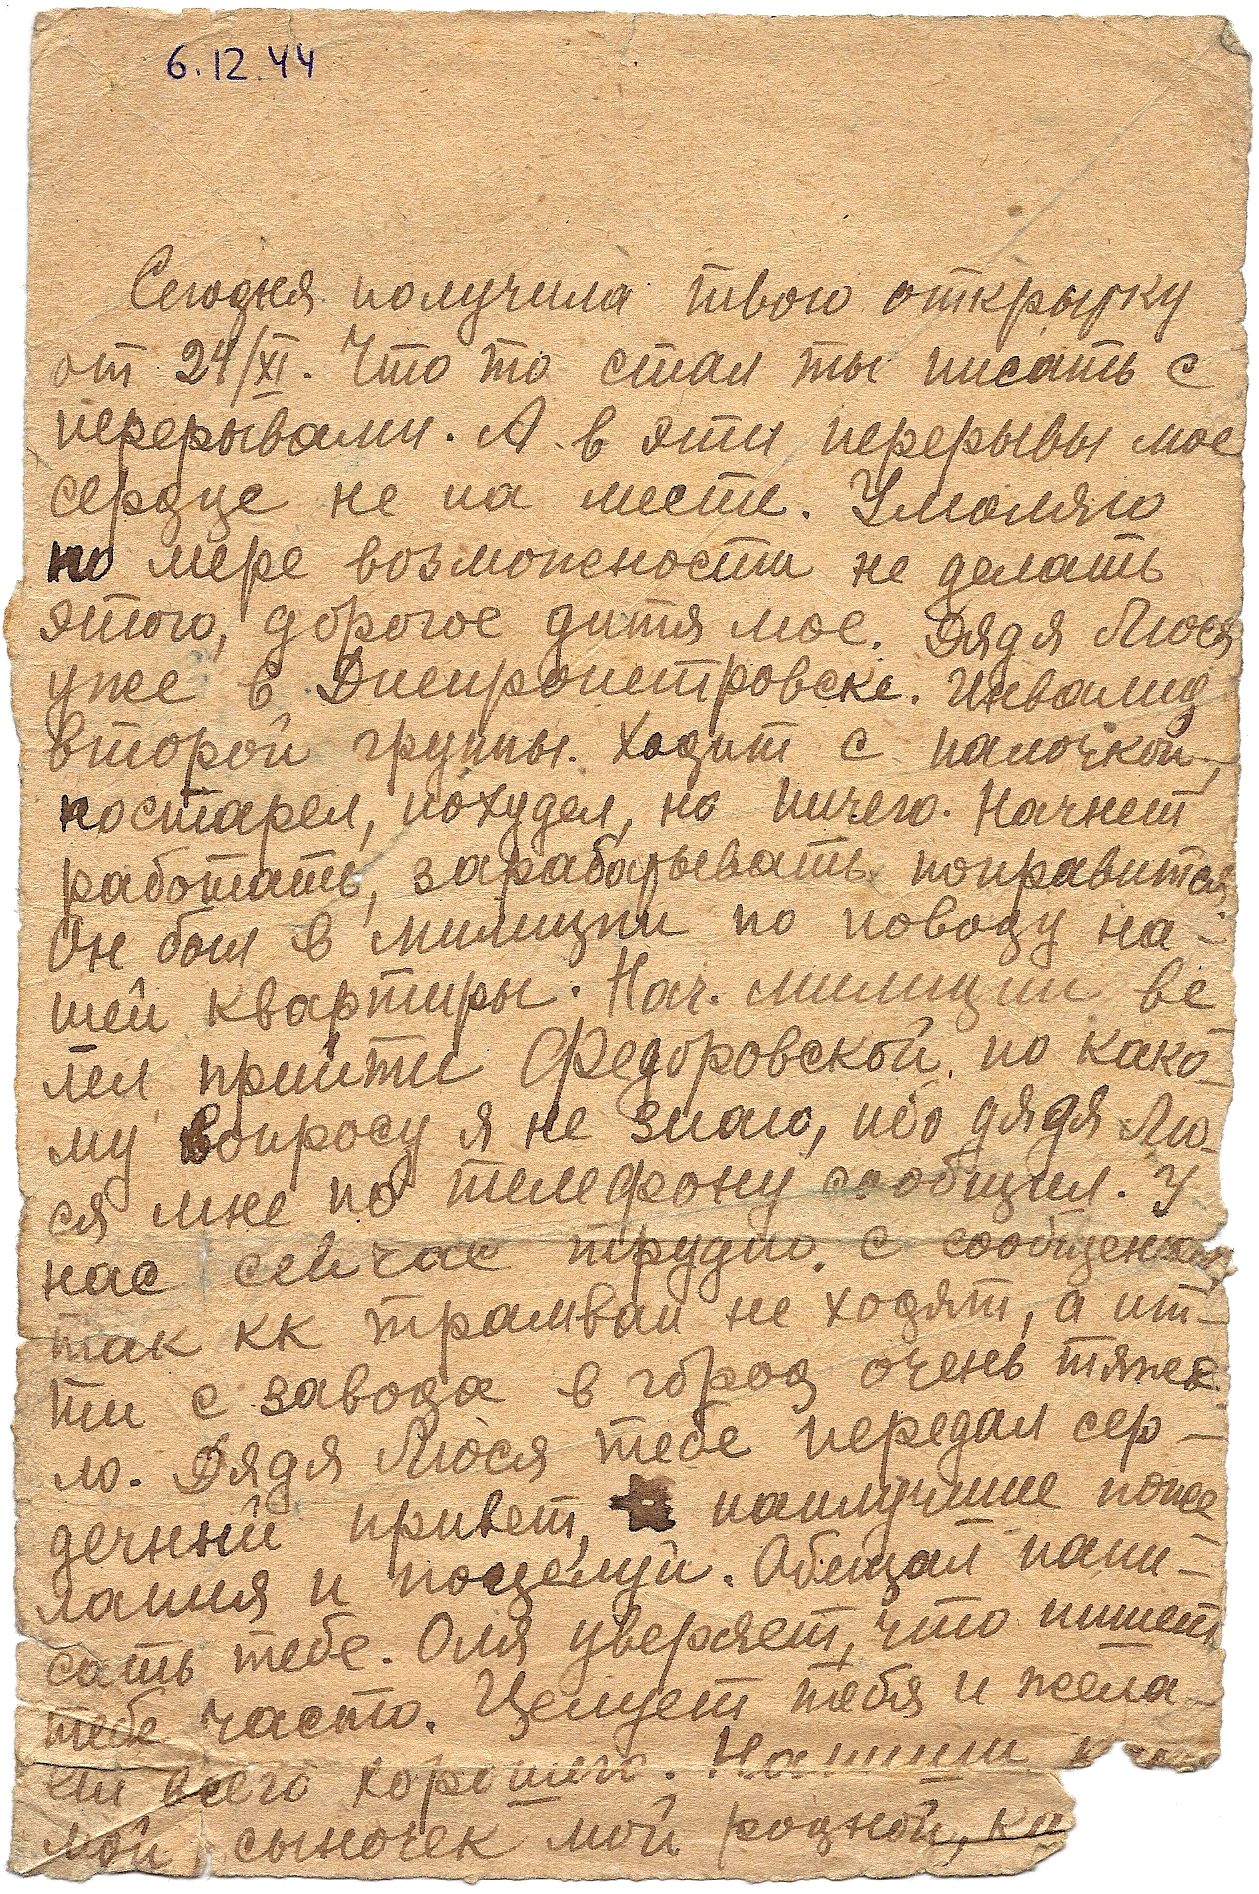 6.12.44
Сегодня получила твою открытку
от 24/XI. Что то стал ты писать с
перерывами. А в эти перерывы мое
сердце не на месте. Умоляю
по мере возможности не делать
этого, дорогое дитя мое. Дядя Люся
уже в Днепропетровске. Инвалид
второй группы. Ходит с палочкой,
постарел, похудел, но ничего. Начнет
работать, зарабатывать поправится.
Он был в милиции по поводу на-
шей квартиры. Нач. милиции ве
лел прийти Федоровской, по како-
му вопросу я не знаю, ибо дядя Лю-
ся мне по телефону сообщил. У
нас сейчас трудно с сообщением,
так кк трамваи не ходят, а ит-
ти с завода в город очень тяже
ло. Дядя Люся тебе передал сер-
дечный привет, наилучшие поже
лания и поцелуй. Обещал напи-
сать тебе. Оля уверяет, что пишет
тебе часто. Целует тебя и жела-
ет всего хорошего. Напиши
мой, сыночек мой родной,